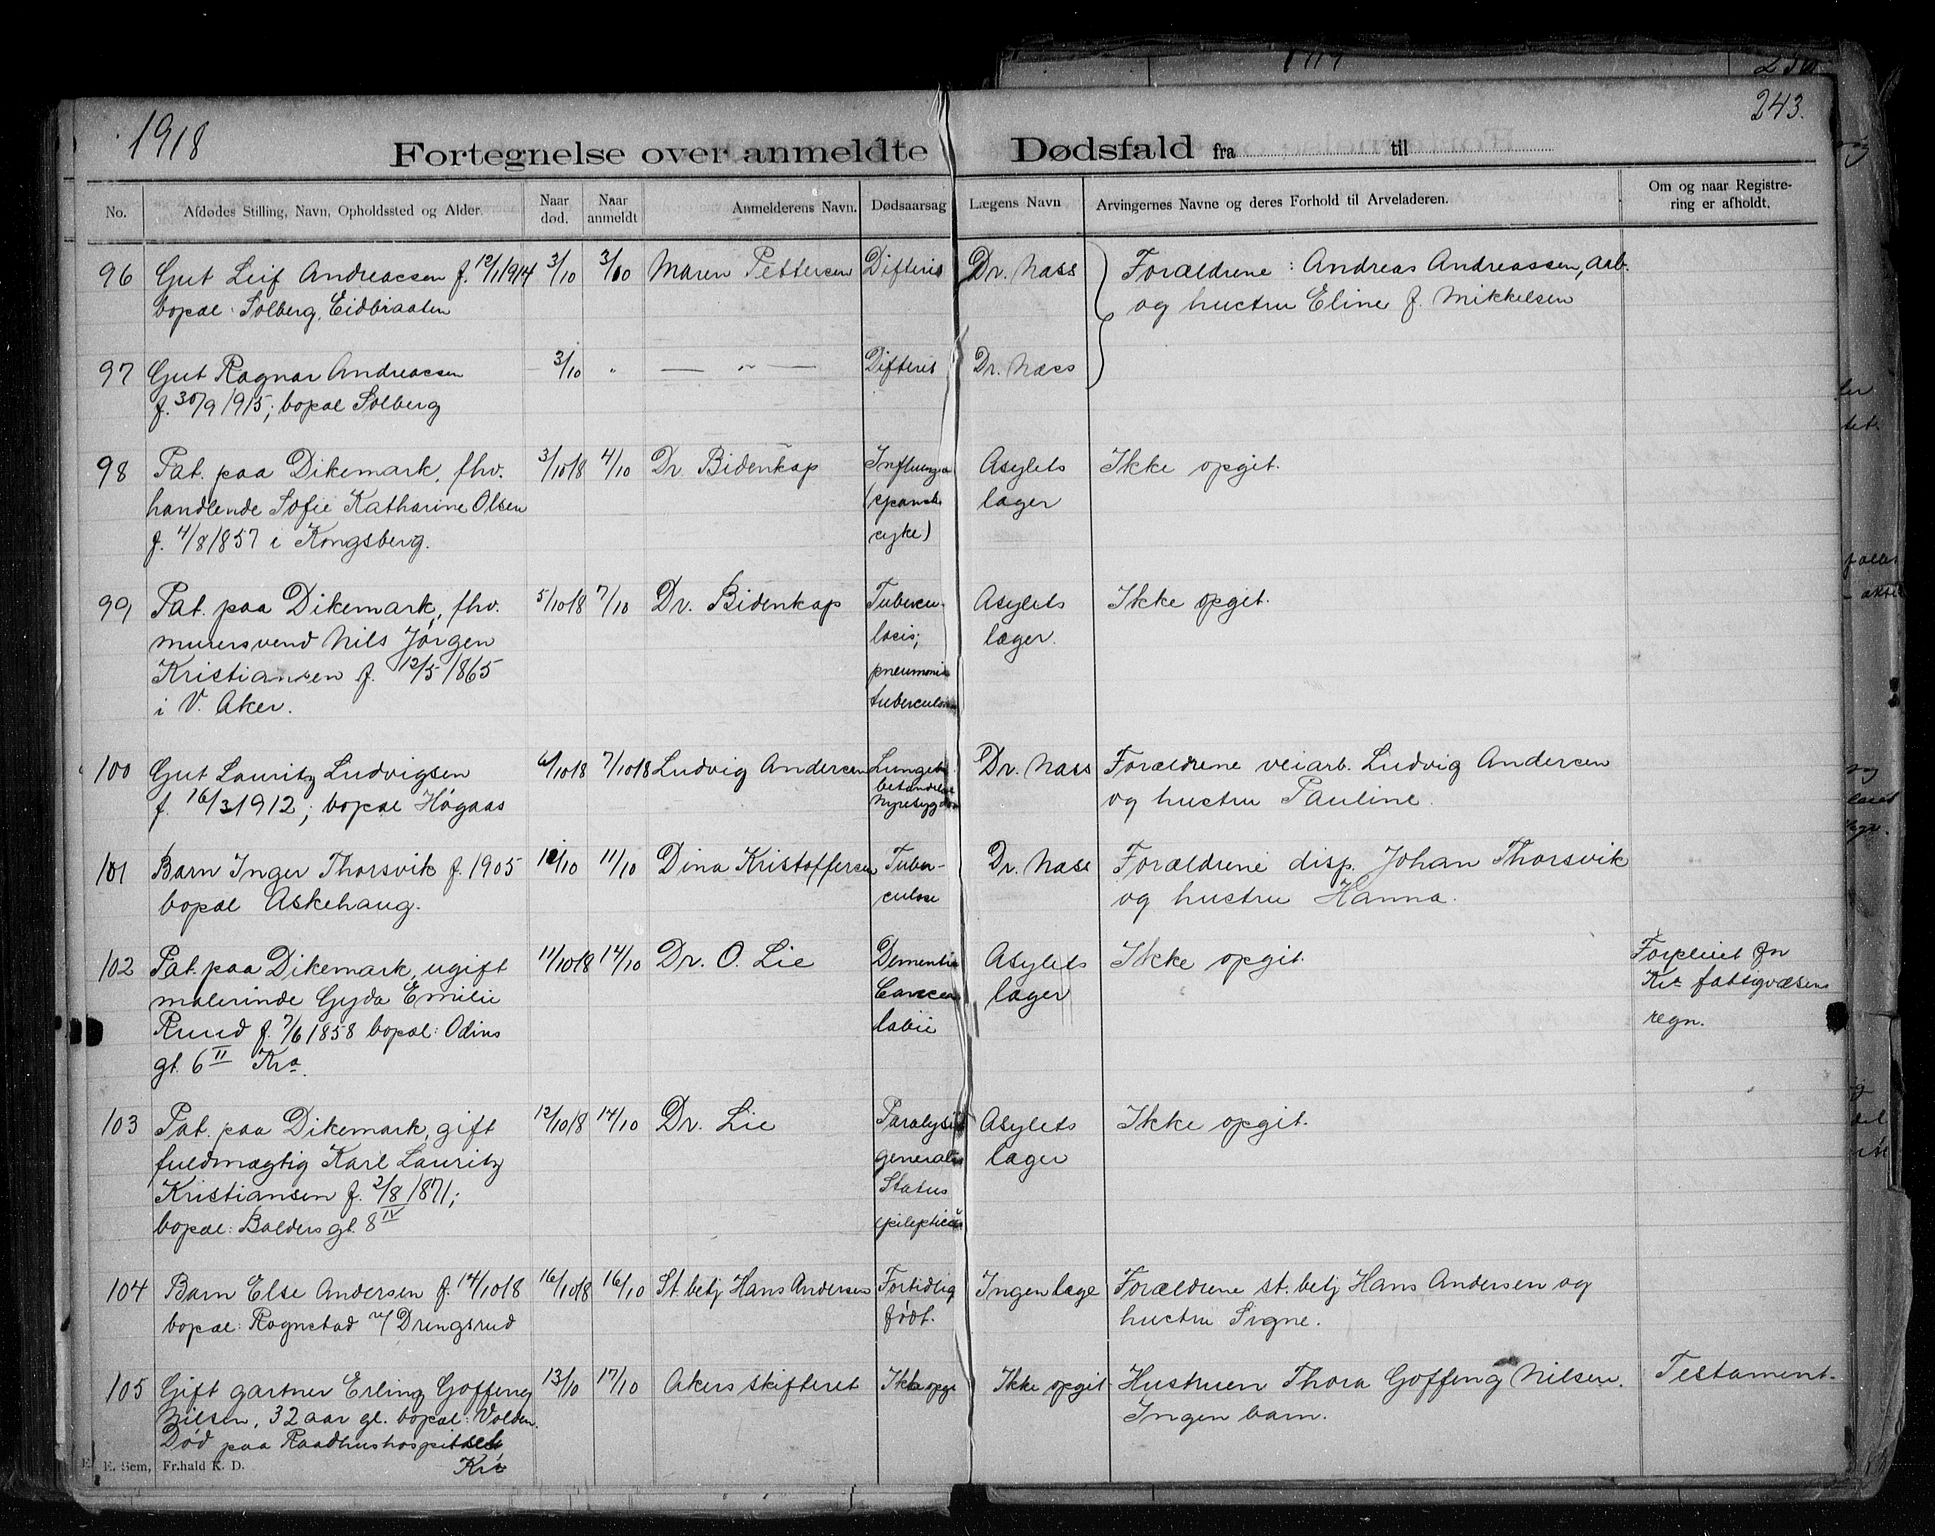 1918
243.
Fortegnelse over anmeldte Dødsfald fra til
No. Afdødes Stilling, Navn, Opholdssted og Alder. Naar død. Naar anmeldt Anmelderens Navn. Dødsaarsag Lægens Navn Arvingernes Navne og deres Forhold til Arveladeren. Om og naar Registrering er afholdt.
96 Gut Leif Andreassen f. 12/1 1914 3/10 3/10 Maren Pettersen Difteris Dr. Næss Forældrene: Andreas Andreassen, arb.
bopæl: Solberg, Eidbraaten og hustru Eline f. Mikkelsen
97 Gut Ragnar Andreassen 3/10 " — " — Difteris Dr. Næss
f. 30/9 1915; bopæl Solberg
98 Pat. paa Dikemark, fhv. 3/10 18 4/10 Dr. Bidenkap Influenza Asylets Ikke opgit.
handlende Sofie Katharine Olsen (spanske læger
f. 4/8 1857 i Kongsberg. syke)
99 Pat. paa Dikemark, fhv. 5/10 18 7/10 Dr. Bidenkap Tubercu- Asylets Ikke opgit.
murersvend Nils Jørgen losis; læger.
Kristiansen f. 12/5 1865 pneumonia
i V. Aker. tuberculosa
100 Gut Lauritz Ludvigsen 6/10 18 7/10 18 Ludvig Andersen Dr. Næss Forældrene veiarb. Ludvig Andersen
f. 16/3 1912; bopæl Høgaas og hustru Pauline.
101 Barn Inger Thorsvik f. 1905 10/10 11/10 Dina Kristoffersen Tuber- Dr. Næss Forældrene disp. Johan Thorsvik
bopæl Askehaug. culose og hustru Hanna.
102 Pat. paa Dikemark, ugift 11/10 18 14/10 Dr. O. Lie Dementia Asylets Ikke opgit. Forpleiet for
malerinde Gyda Emilie læger Kra fattigvæsens
Ruud f. 7/6 1858 bopæl: Odins labii regn.
gt. 6 II Kra.
103 Pat. paa Dikemark, gift 12/10 18 14/10 Dr. Lie Paralysis Asylets Ikke opgit.
fuldmægtig Karl Lauritz generalis læger
Kristiansen f. 2/8 1871; Status
bopæl: Balders gt. 8 IV epilepticus
104 Barn Else Andersen f. 14/10 18 16/10 18 16/10 St. betj Hans Andersen Fortidlig Ingen læge Forældrene st. betj Hans Andersen og
bopæl: Rognstad v/ Drengsrud født. hustru Signe.
105 Gift gartner Erling Goffeng 13/10 17/10 Akers skifteret Ikke opgi Ikke opgit Hustruen Thora Goffeng Nilsen. Testament.
Nilsen, 32 aar gl. bopæl: Volden. Ingen barn.
Død paa Raadhushospitalet,
Kra
E. Sem, Fr.hald K. D.